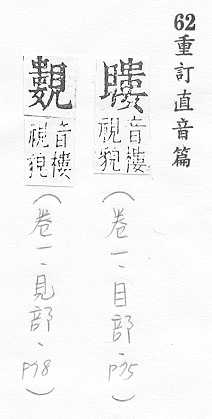 62重訂直音篇
瞜
音樓
視貌
（卷一、目部、p75）
音樓
視貌
（卷一、見部、p78）